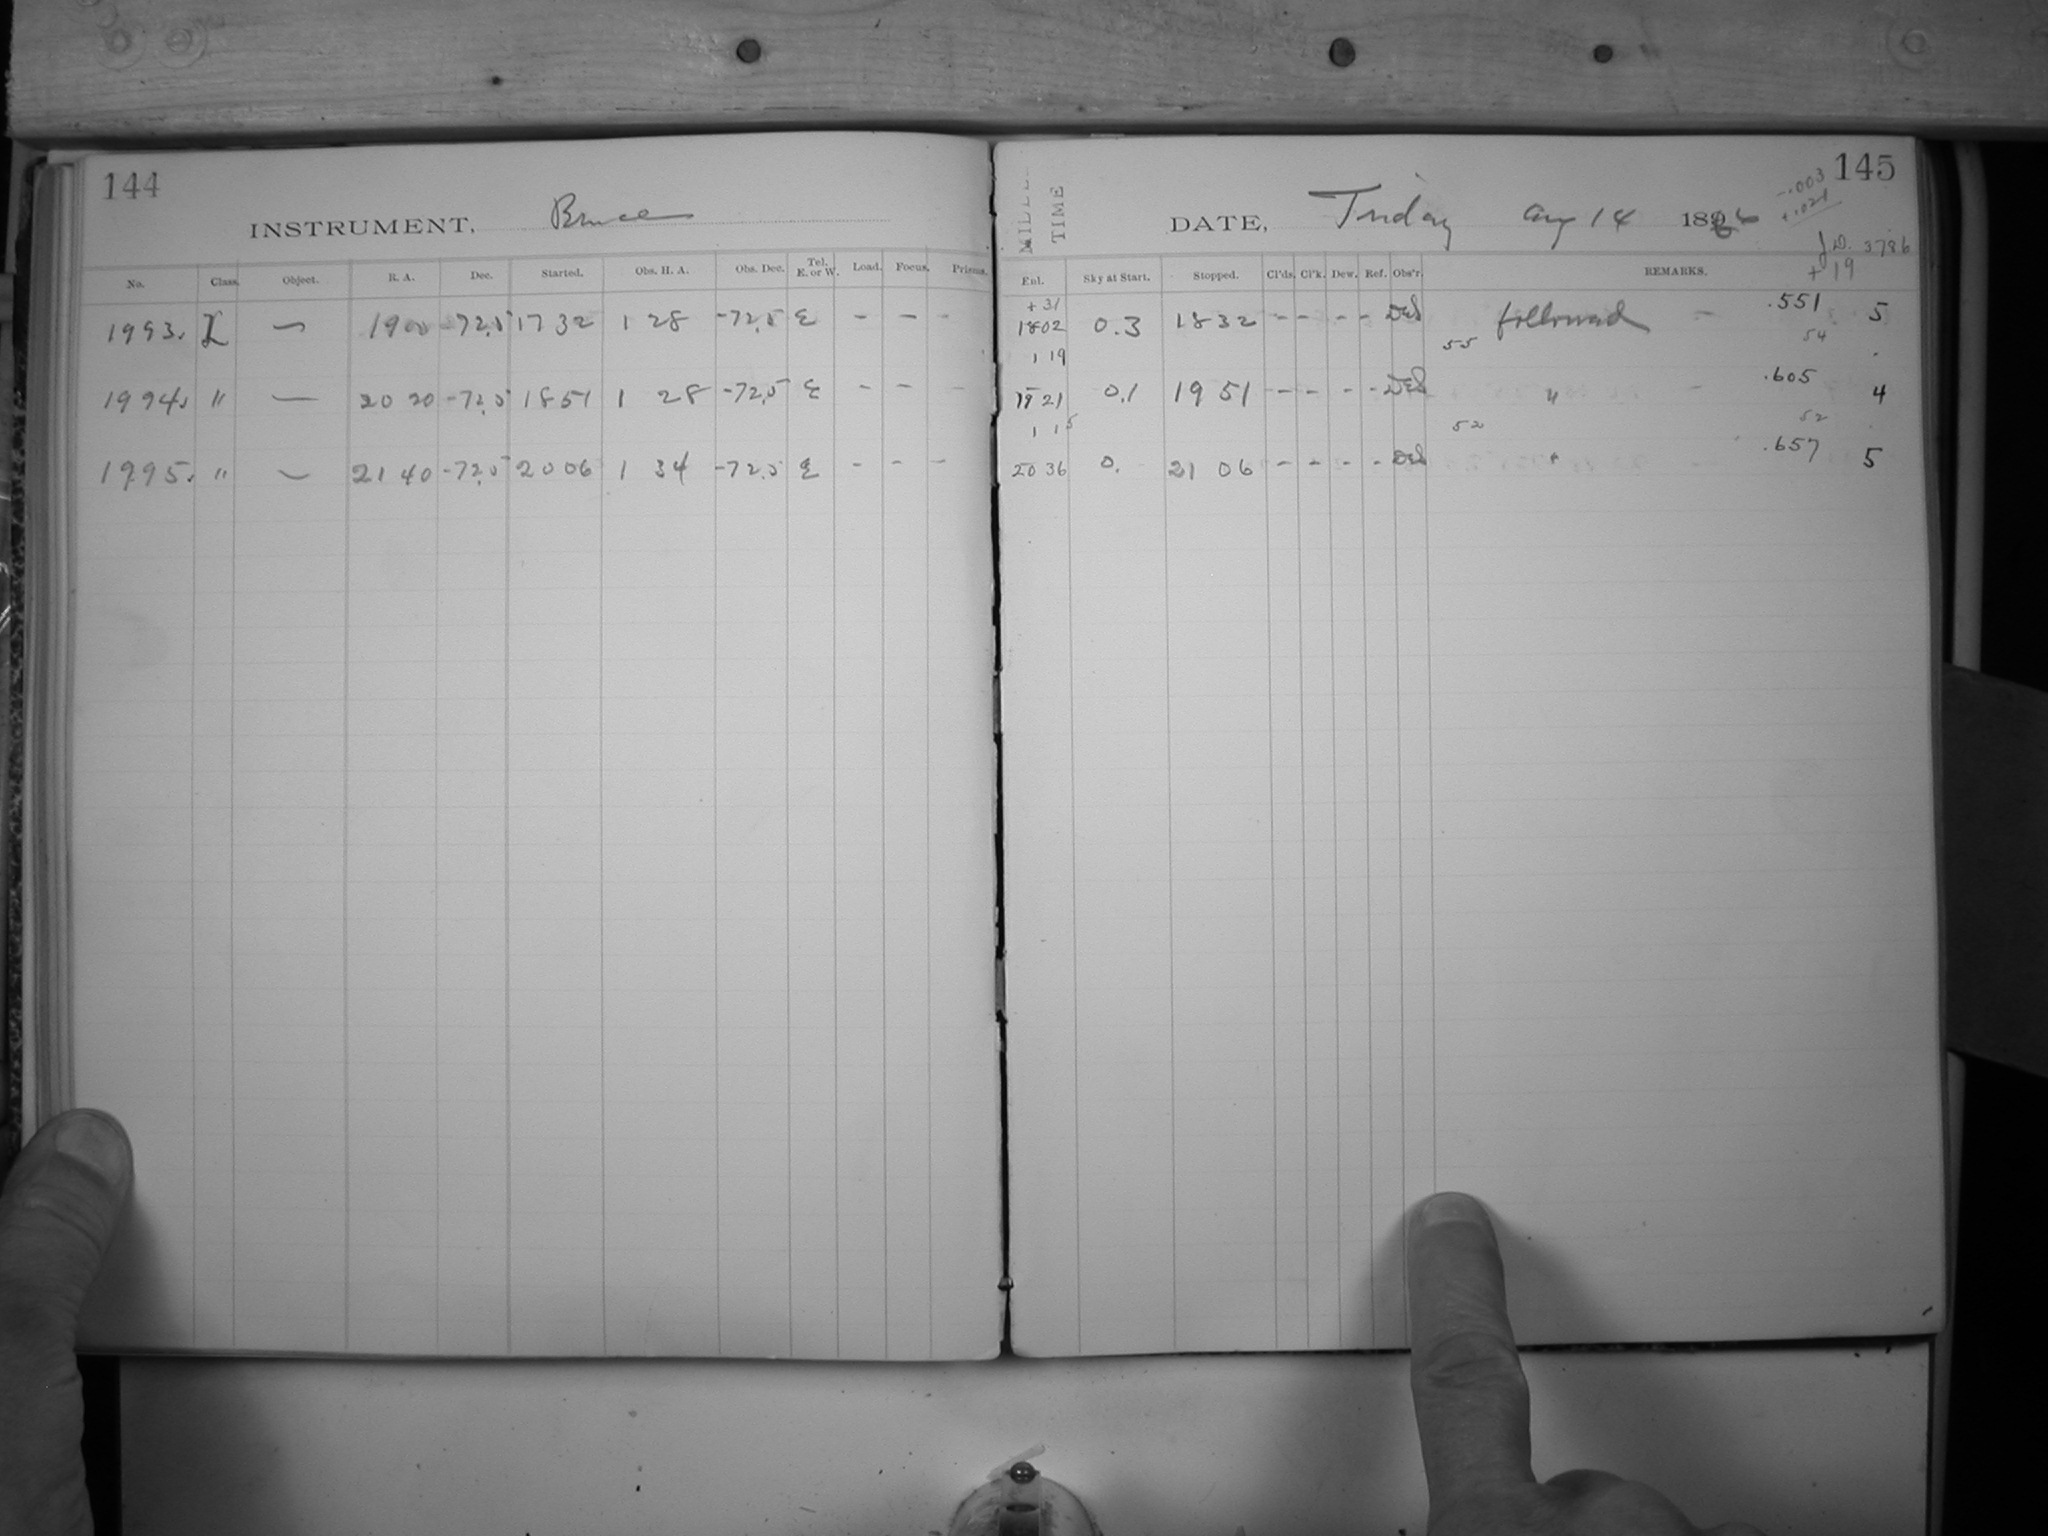 144
INSTRUMENT, Bruce
No. Class. Object. R. A. Dec. Started. Obs. H. A. Obs. Dec. Tel. E. or W. Load. Focus. Prisms.
1993. L — 19 00 -72.5 17 32 1 28 -72.5 E - - -
1994. " — 20 20 -72.5 18 51 1 28 -72.5 E - - -
1995. " — 21 40 -72.5 20 06 1 34 -72.5 E - - -
145
TIME
DATE, Friday Aug 14 1896
-.003
+.021
J.D. 3786
+ 19
Sky at Start. Stopped. Cl'ds. Cl'k. Dew. Ref. Obs'r. REMARKS.
+31
1802 0.3 18 32 - - - - DES followed - .551 5
1 19 55 54
19 21 0.1 19 51 - - - - DES " - .605 4
1 15 52 52
20 36 0. 21 06 - - - - DES " .657 5